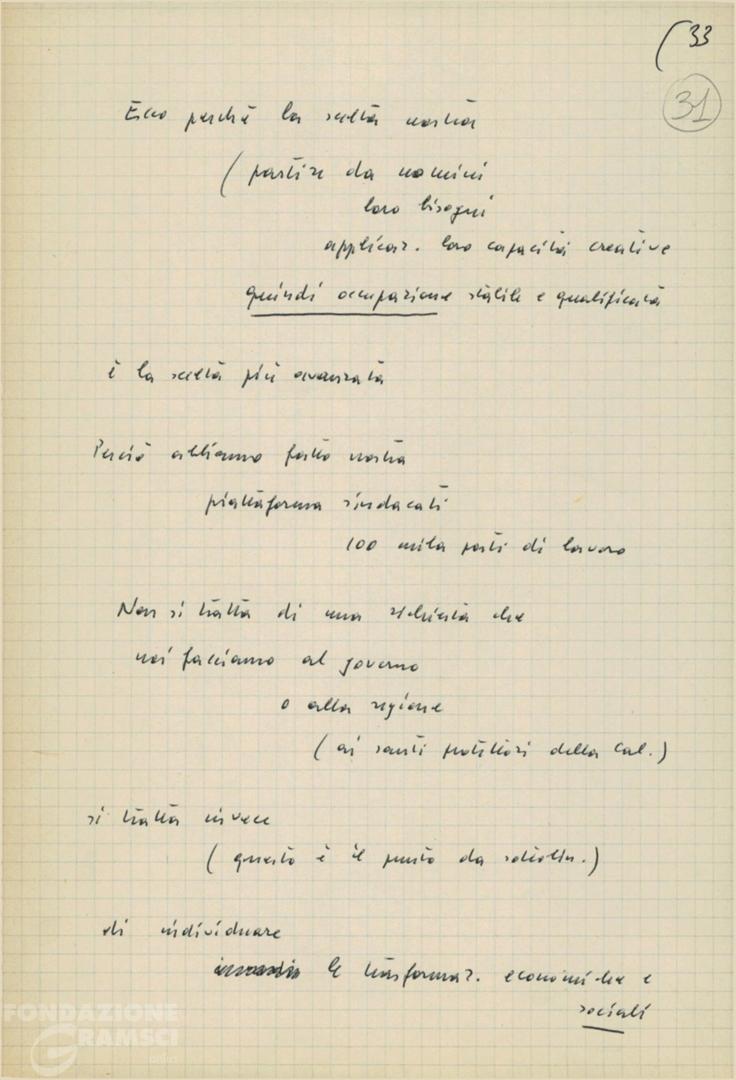 (33
31
Ecco perché la scelta nostra
(partire da uomini
loro bisogni
applicaz. loro capacità creative
quindi occupazione stabile e qualificata
è la scelta più avanzata
Perciò abbiamo fatto nostra
piattaforma sindacati
100 mila posti di lavoro
Non si tratta di una richiesta che
noi facciamo al governo
o alla regione
(ai santi protettori della Cal.)
si tratta invece
(questo è il punto da sottolin.)
di individuare
le trasformaz. economiche e
sociali
FONDAZIONE
GRAMSCI